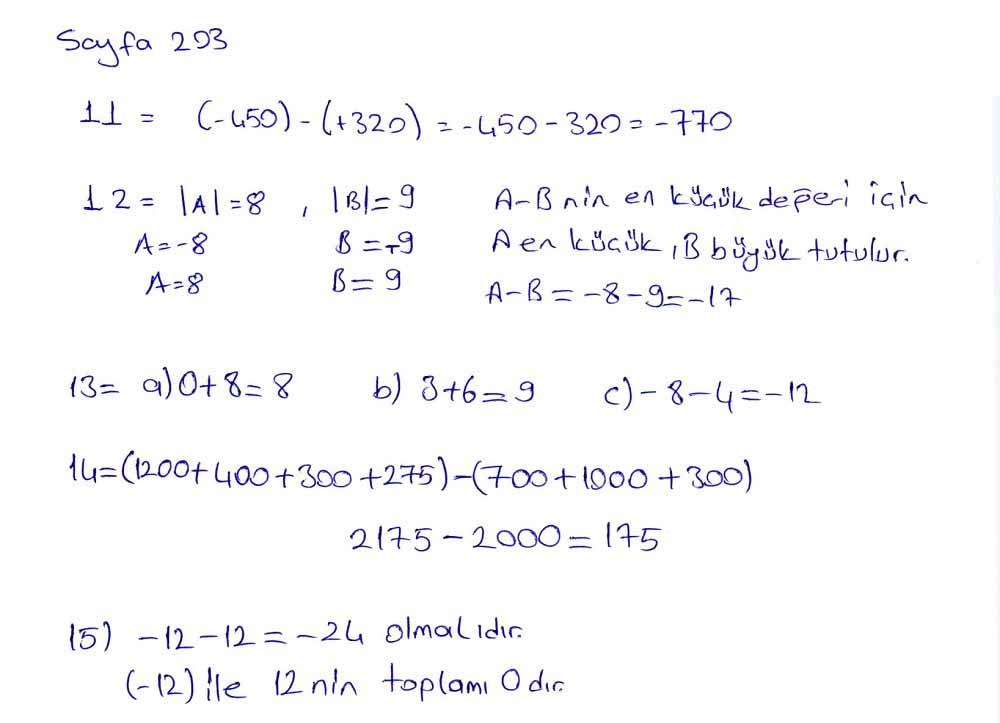 Sayfa 203
11 = (-450) - (+320) = -450 - 320 = -770
12 = |A| = 8 , |B| = 9 A-B nin en küçük değeri için
A = -8 B = -9 A en küçük, B büyük tutulur.
A = 8 B = 9 A-B = -8-9 = -17
13 = a) 0+8 = 8 b) 3+6 = 9 c) -8-4 = -12
14 = (1200+400+300+275)-(700+1000+300)
2175 - 2000 = 175
15) -12-12 = -24 olmalıdır.
(-12) ile 12 nin toplamı 0 dır.